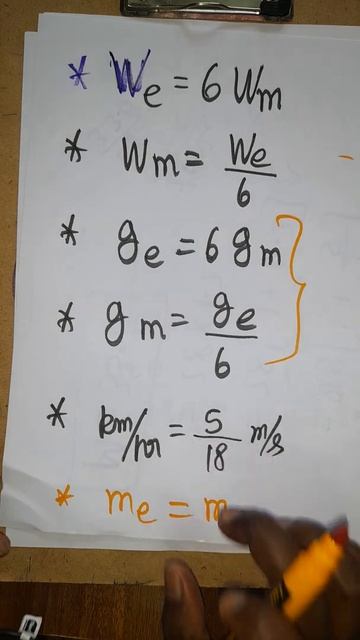 * We = 6 Wm
* Wm = We/6
* ge = 6 gm
* gm = ge/6
* km/hr = 5/18 m/s
* me = m